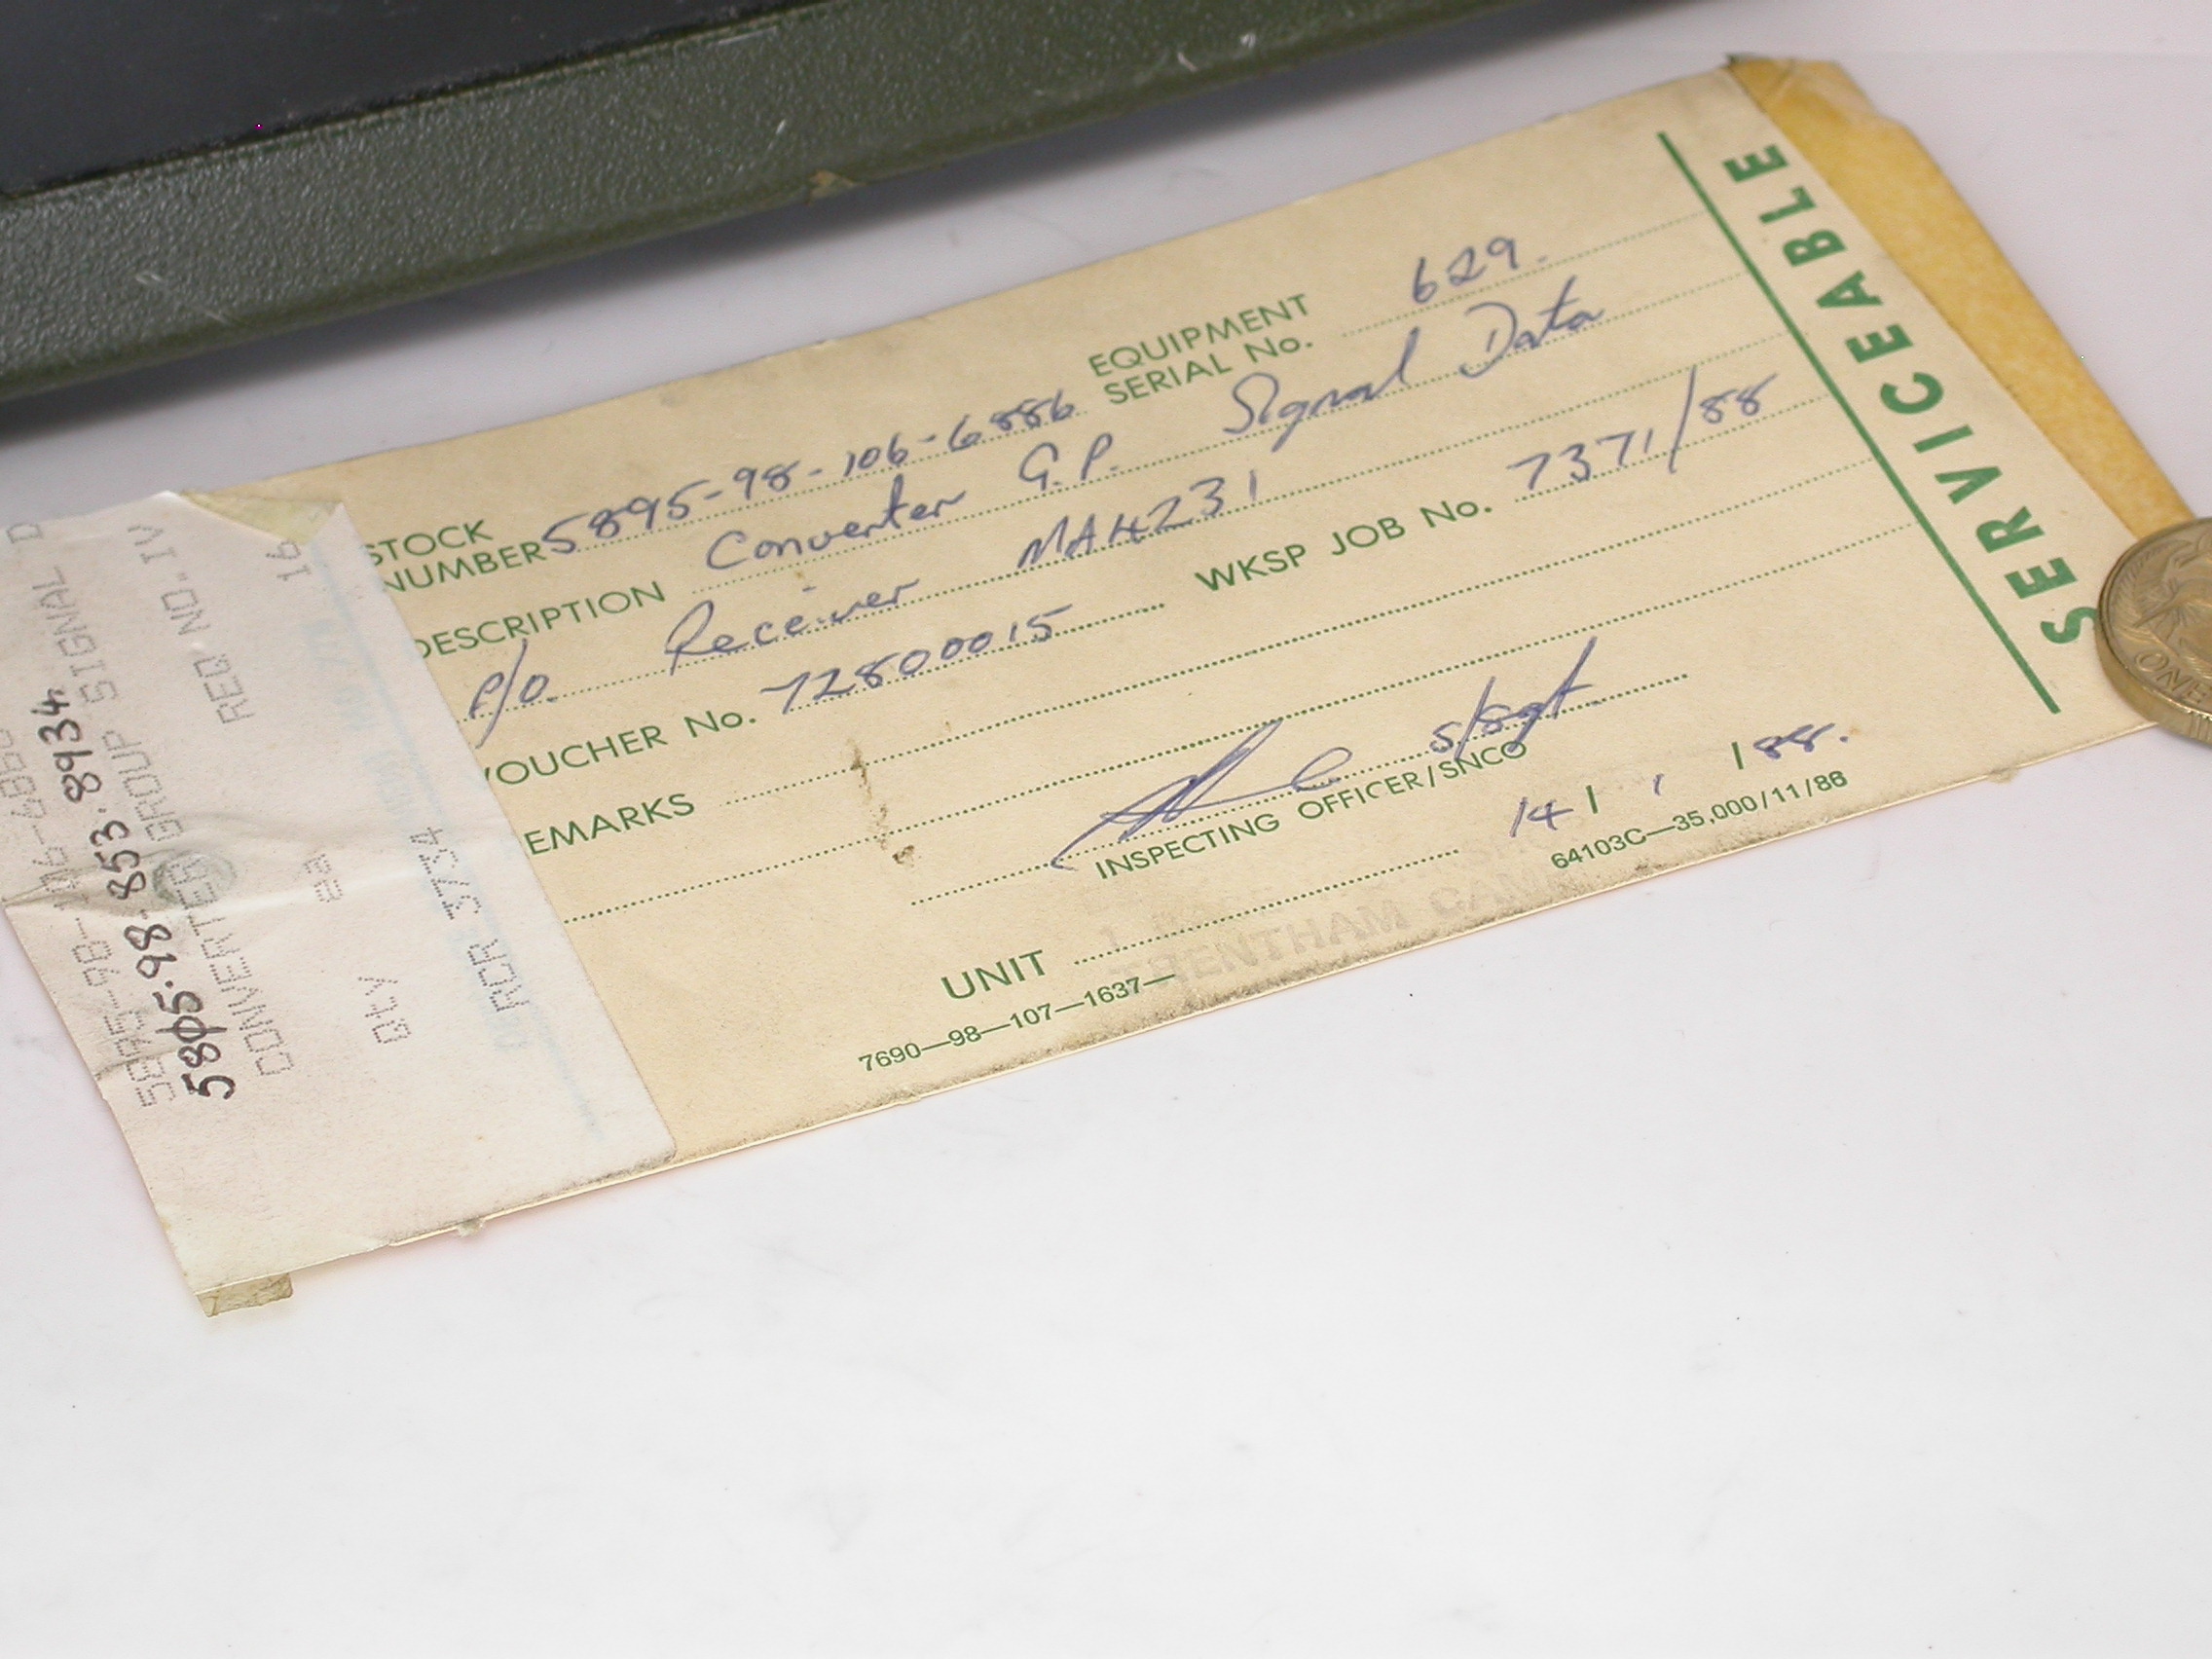 STOCK
NUMBER 5895-98-106-6886 EQUIPMENT SERIAL No. 629.
DESCRIPTION Converter G.P. Signal Data
P/O. Receiver MA4231
VOUCHER No. 72800015 WKSP JOB No. 7371/88
EMARKS
S/Sgt.
INSPECTING OFFICER/SNCO
UNIT 14/1/88.
7690—98—107—1637— 64103C—35,000/11/86
ENTHAM CAM
SERVICEABLE
5895-98-106-6886
5805.98.853.8934
CONVERTER GROUP SIGNAL D
REQ NO. IV
16
QTY
RCR 3734
ONE